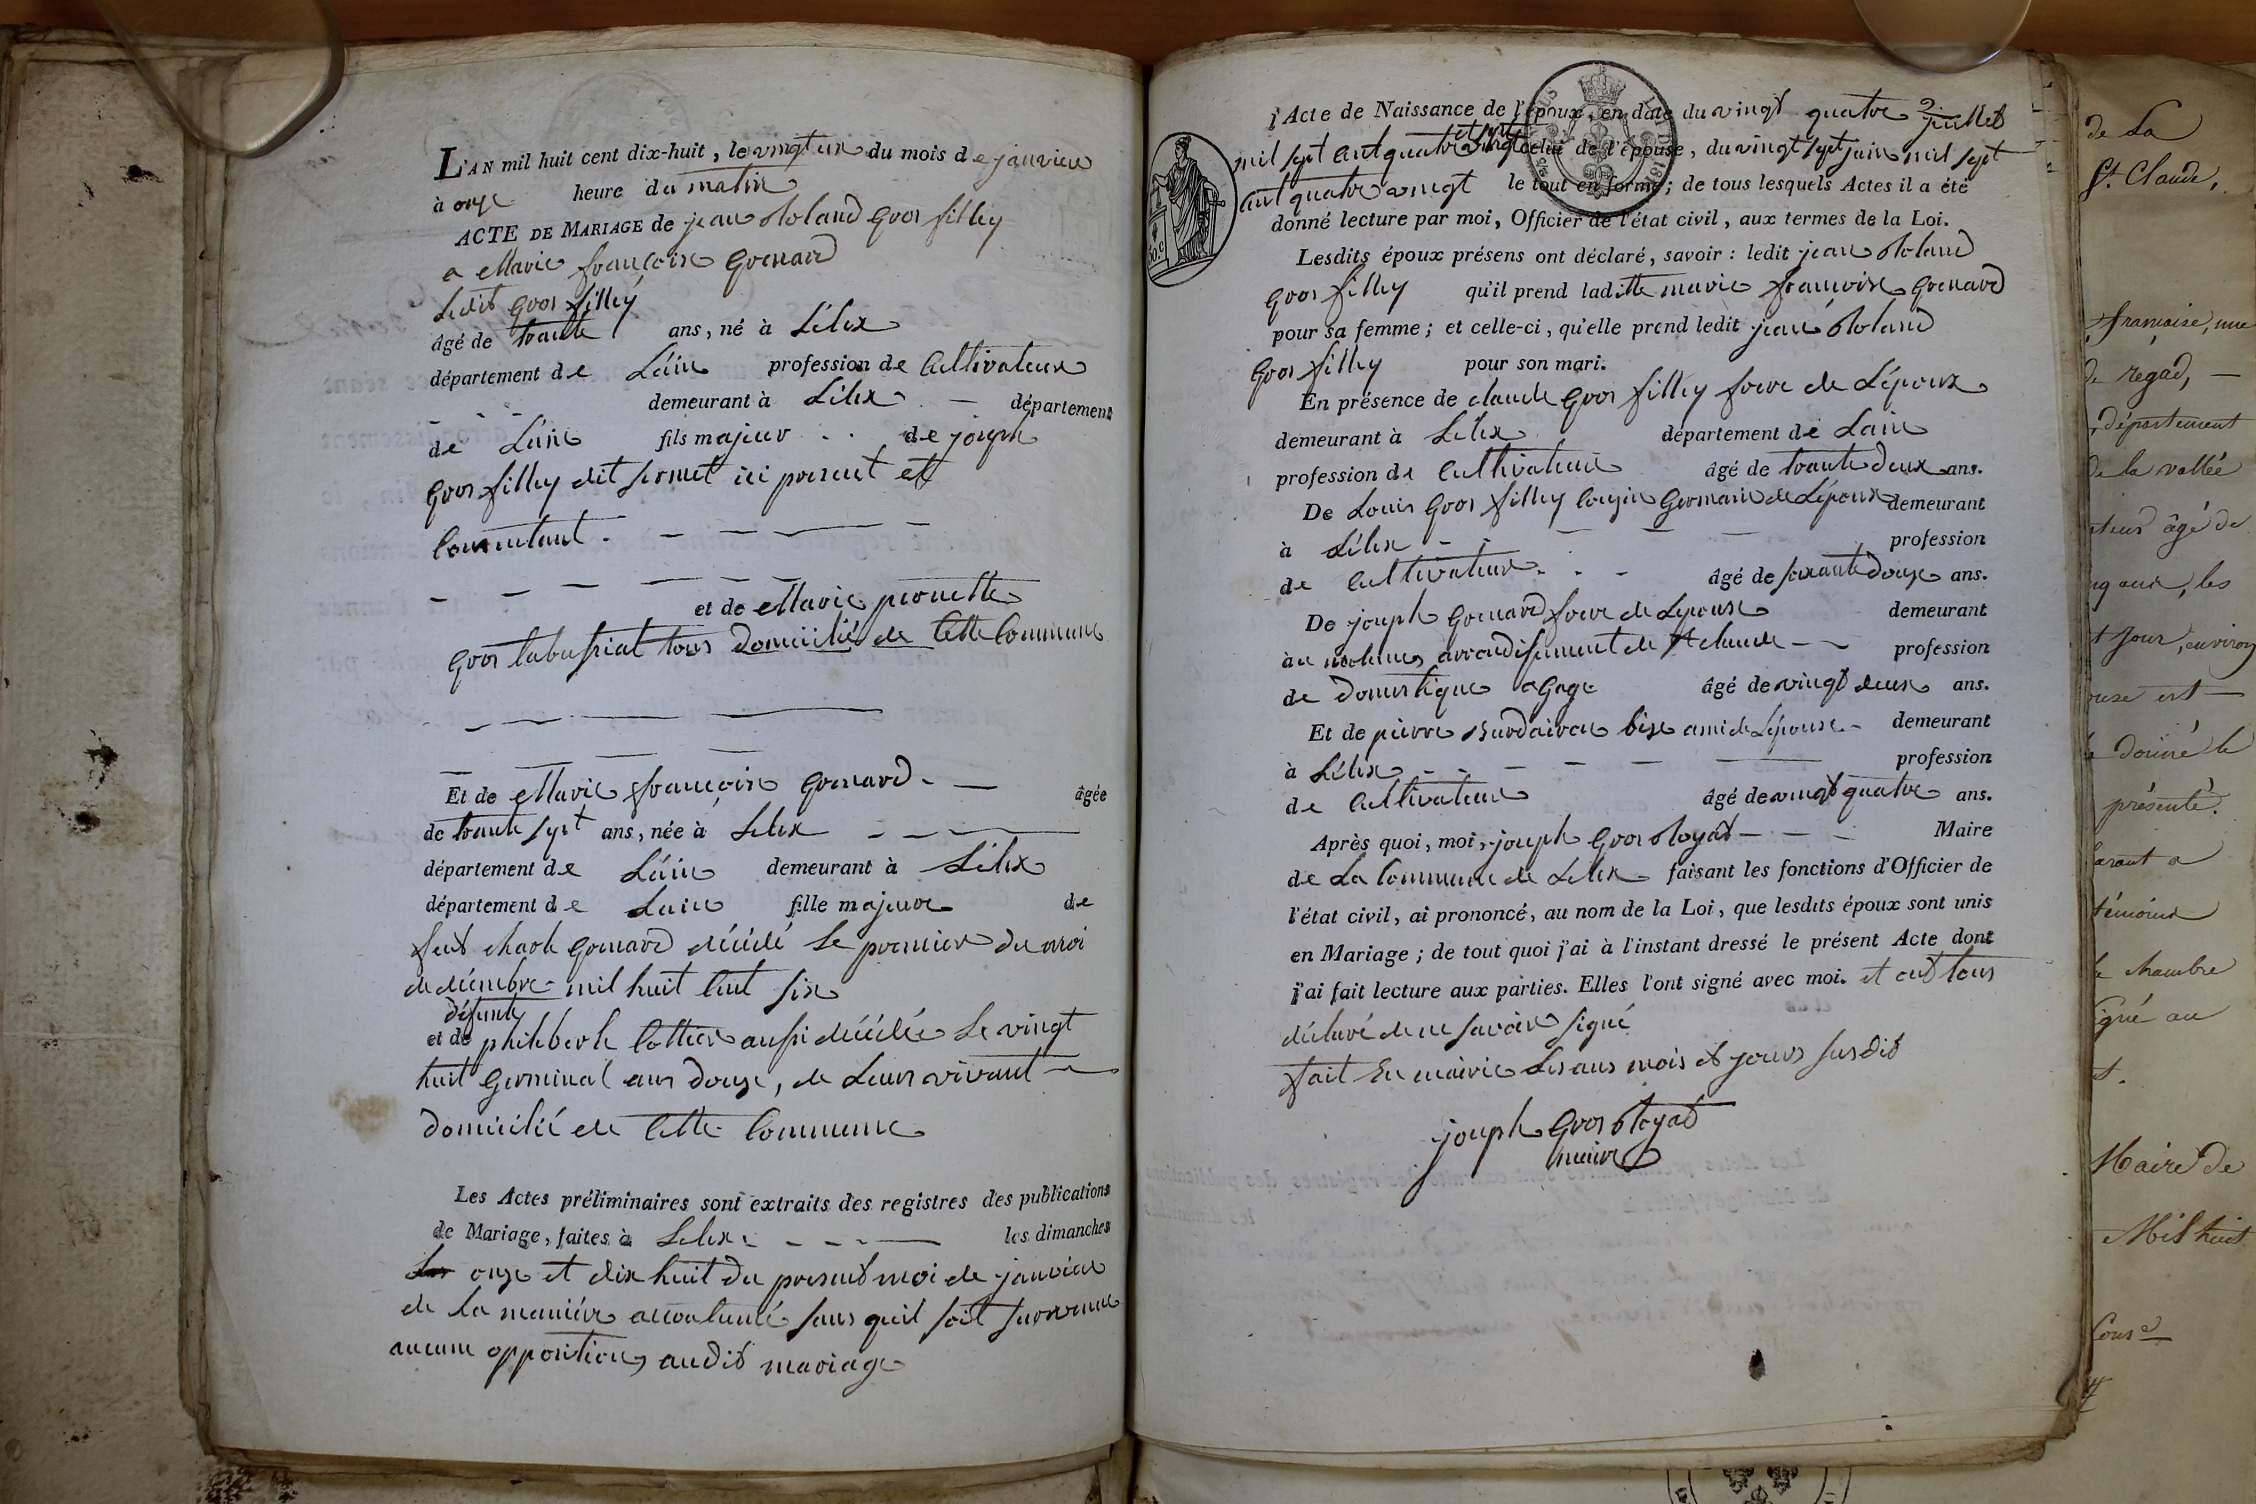 L'AN mil huit cent dix-huit, le vingt un du mois de janvier
à onze heure du matin
ACTE DE MARIAGE de jean Roland Gros filley
a Marie françoise Grenard
Ledit Gros filley
âgé de trante ans, né à Lélex
département de L'ain profession de Cultivateur
demeurant à Lélex département
de L'ain fils majeur de joseph
Gros filley dit ici present et
Consentant
et de Marie pernette
Gros tabussiat tous domicilié de Cette Commune
Et de Marie françoise Grenard âgée
de trante sept ans, née à Lelex
département de L'ain demeurant à Lélex
département de Lain fille majeure de
feut charle Grenard décédé le premier du moi
de décembre mil huit Cent six
défunte
et de philiberte Cottier aussi décédée le vingt
huit Germinal ans douze, de Leurs vivant
domicilié de Cette Commune
Les Actes préliminaires sont extraits des registres des publications
de Mariage, faites à Lelex les dimanches
onze et dix huit du present moi de janvier
de la maniére accoutumé sans quil soit survenue
aucune opposition audit mariage
l'Acte de Naissance de l'époux, en date du vingt quatre juillet
mil sept Cent quatre vingt et sept celui de l'épouse, du vingt sept juin mil sept
Cent quatre vingt le tout en forme; de tous lesquels Actes il a été
donné lecture par moi, Officier de l'état civil, aux termes de la Loi.
Lesdits époux présens ont déclaré, savoir : ledit jean Roland
Gros filley qu'il prend laditte marie françoise Grenard
pour sa femme; et celle-ci, qu'elle prend ledit jean Roland
Gros filley pour son mari.
En présence de claude Gros filley frere de L'époux
demeurant à Lelex département de Lain
profession de Cultivateur âgé de trante deux ans.
De Louis Gros filley Cousin Germain de L'époux demeurant
à Lélex profession
de Cultivateur âgé de soixante douze ans.
De joseph Grenard frere de Lepouse demeurant
au molunes arrondissement de St claude profession
de domestique a Gage âgé de vingt deux ans.
Et de pierre Burdairon bise ami de L'épouse demeurant
à Lélex profession
de Cultivateur âgé de vingt quatre ans.
Après quoi, moi, joseph Gros Royat Maire
de La Commune de Lelex faisant les fonctions d'Officier de
l'état civil, ai prononcé, au nom de la Loi, que lesdits époux sont unis
en Mariage; de tout quoi j'ai à l'instant dressé le présent Acte dont
j'ai fait lecture aux parties. Elles l'ont signé avec moi. et ont tous
déclaré de ne savoir signé
fait En mairie Les ans mois et jours susdit
joseph Gros Royat
maire
de La
St. Claude,
française, une
de régad,
département
de la vallée
âgé de
les
Jour, environ
est
donné le
présenté.
témoins
chambre
signé au
Maire de
Mil huit